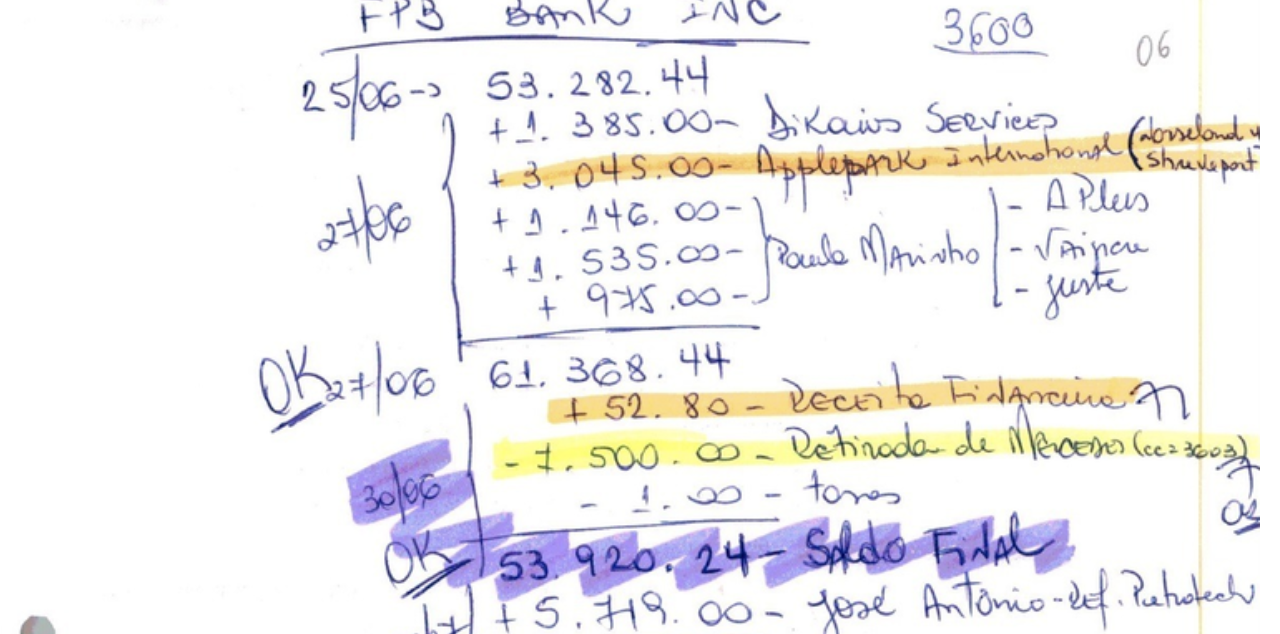 FPB BANK INC
3600
06
25/06-> 53.282.44
+1.385.00- Dikaios Services
+3.045.00- Applepark International (Dorseland
Shreveport
27/06
+1.146.00- - A Plus
+1.535.00- Paula Marinho
+ 975.00- - Juste
OK 27/06 61.368.44
+52.80- Receita Financeira
-7.500.00- Retirada de Mercedes (cc=3603)
30/06
-1.00- taxas
OK 53.920.24- Saldo Final
+5.719.00- José Antônio-Ref. Petrotech